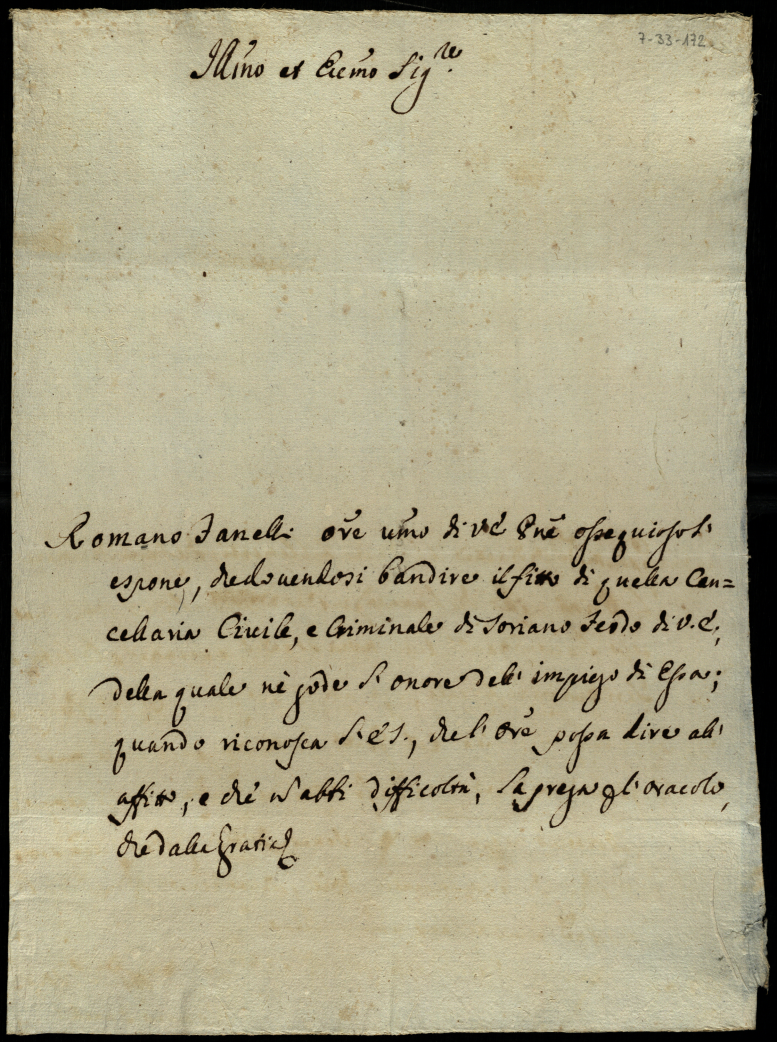 7-33-172
Illmo et Eccmo Sigre.
Romano Fanelli Ore umo di V.E. ossequiosote
espone, che dovendosi bandire il fitto di quella Can=
cellaria Civile, e Criminale di Soriano Feodo di V.E.,
della quale nè gode l' onore dell' impiego di Essa;
quando riconosca l' E.S., che l' Ore possa dire all'
affitto, e che nō abbi difficoltà, La prega p l' oracolo,
che dalla Gratia